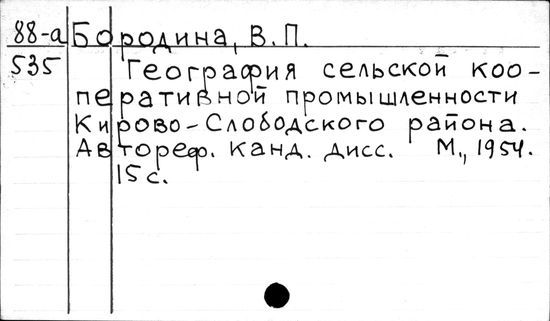 88-а Бородина, В.П.
535 География сельской коо-
перативной промышленности
Кирово-Слободского района.
Автореф. канд. дисс. М., 1954.
15 с.